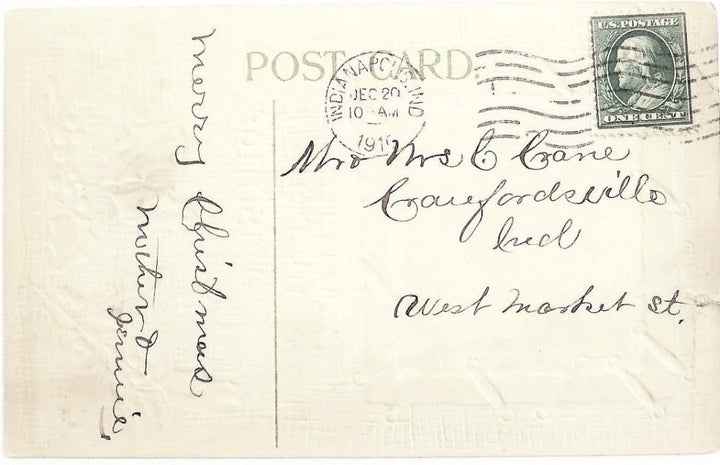 POST CARD
U.S. POSTAGE
ONE CENT
INDIANAPOLIS, IND
DEC 20
10 AM
Mrs C Crane
Crawfordsville
Ind
West Market St.
Merry
Christmas
Mother &
Jennie